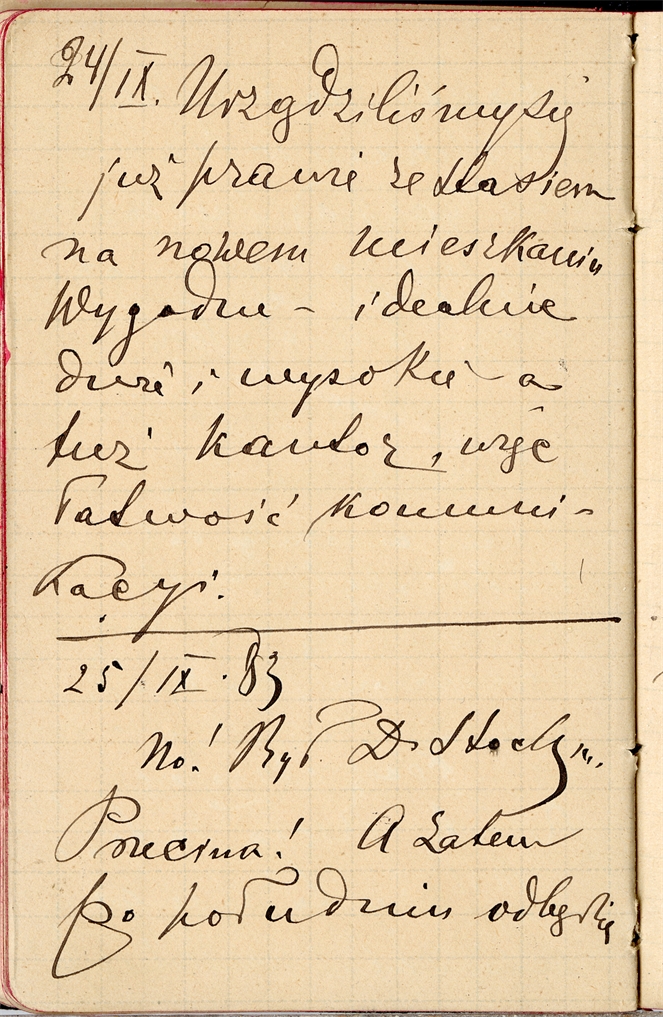 24/IX. Urządziliśmy się
już prawie ze Stasiem
na nowem mieszkaniu
Wygodne - idealnie
duże i wysokie - a
tuż kantor, więc
łatwość komuni-
kacyi.
25/IX. 83
No! Był Dr Stockm.
Przecina! A zatem
po południu odbędzie